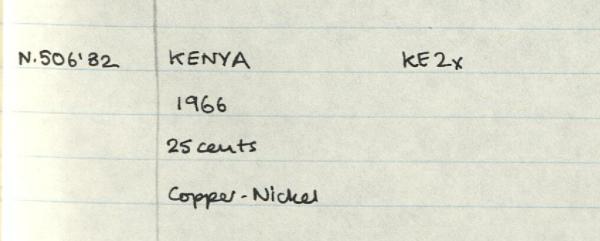 N.506'82 KENYA KE2x
1966
25 cents
Copper-Nickel